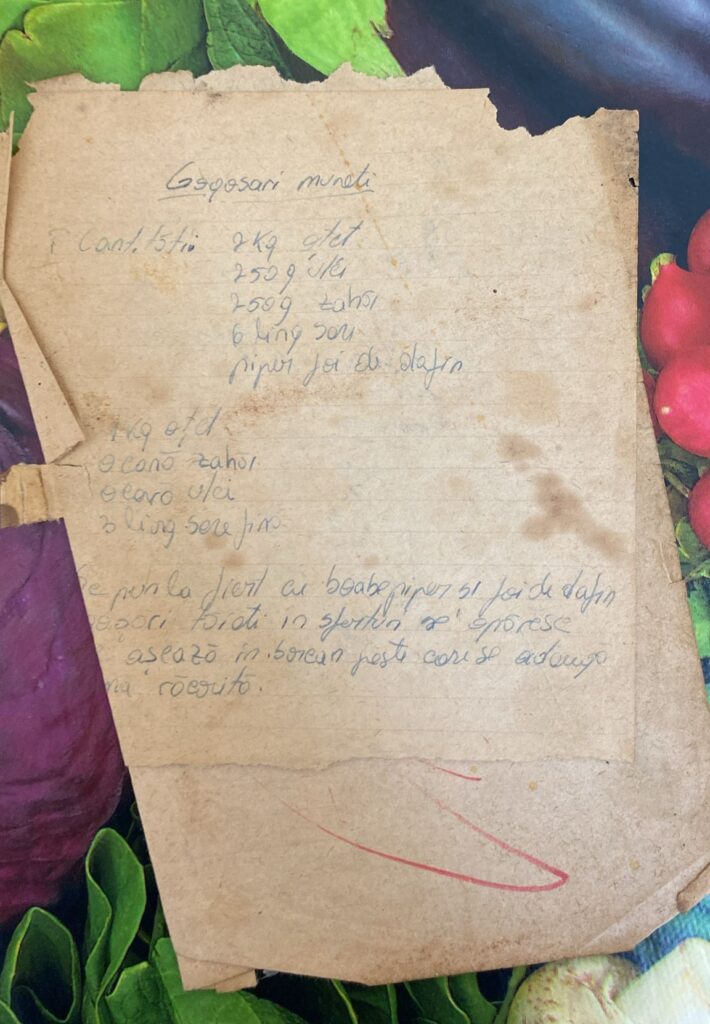 Gogosari murati
Cantitatii 2 kg otet
250 g ulei
250 g zahar
6 ling sare
piper foi de dafin
1 kg otet
o cană zahar
o ceara ulei
3 ling sare fina
Se pun la fiert cu boabe piper si foi de dafin
taiati in sferturi se oparesc
asează in borcan peste care se adauga
răcorită.